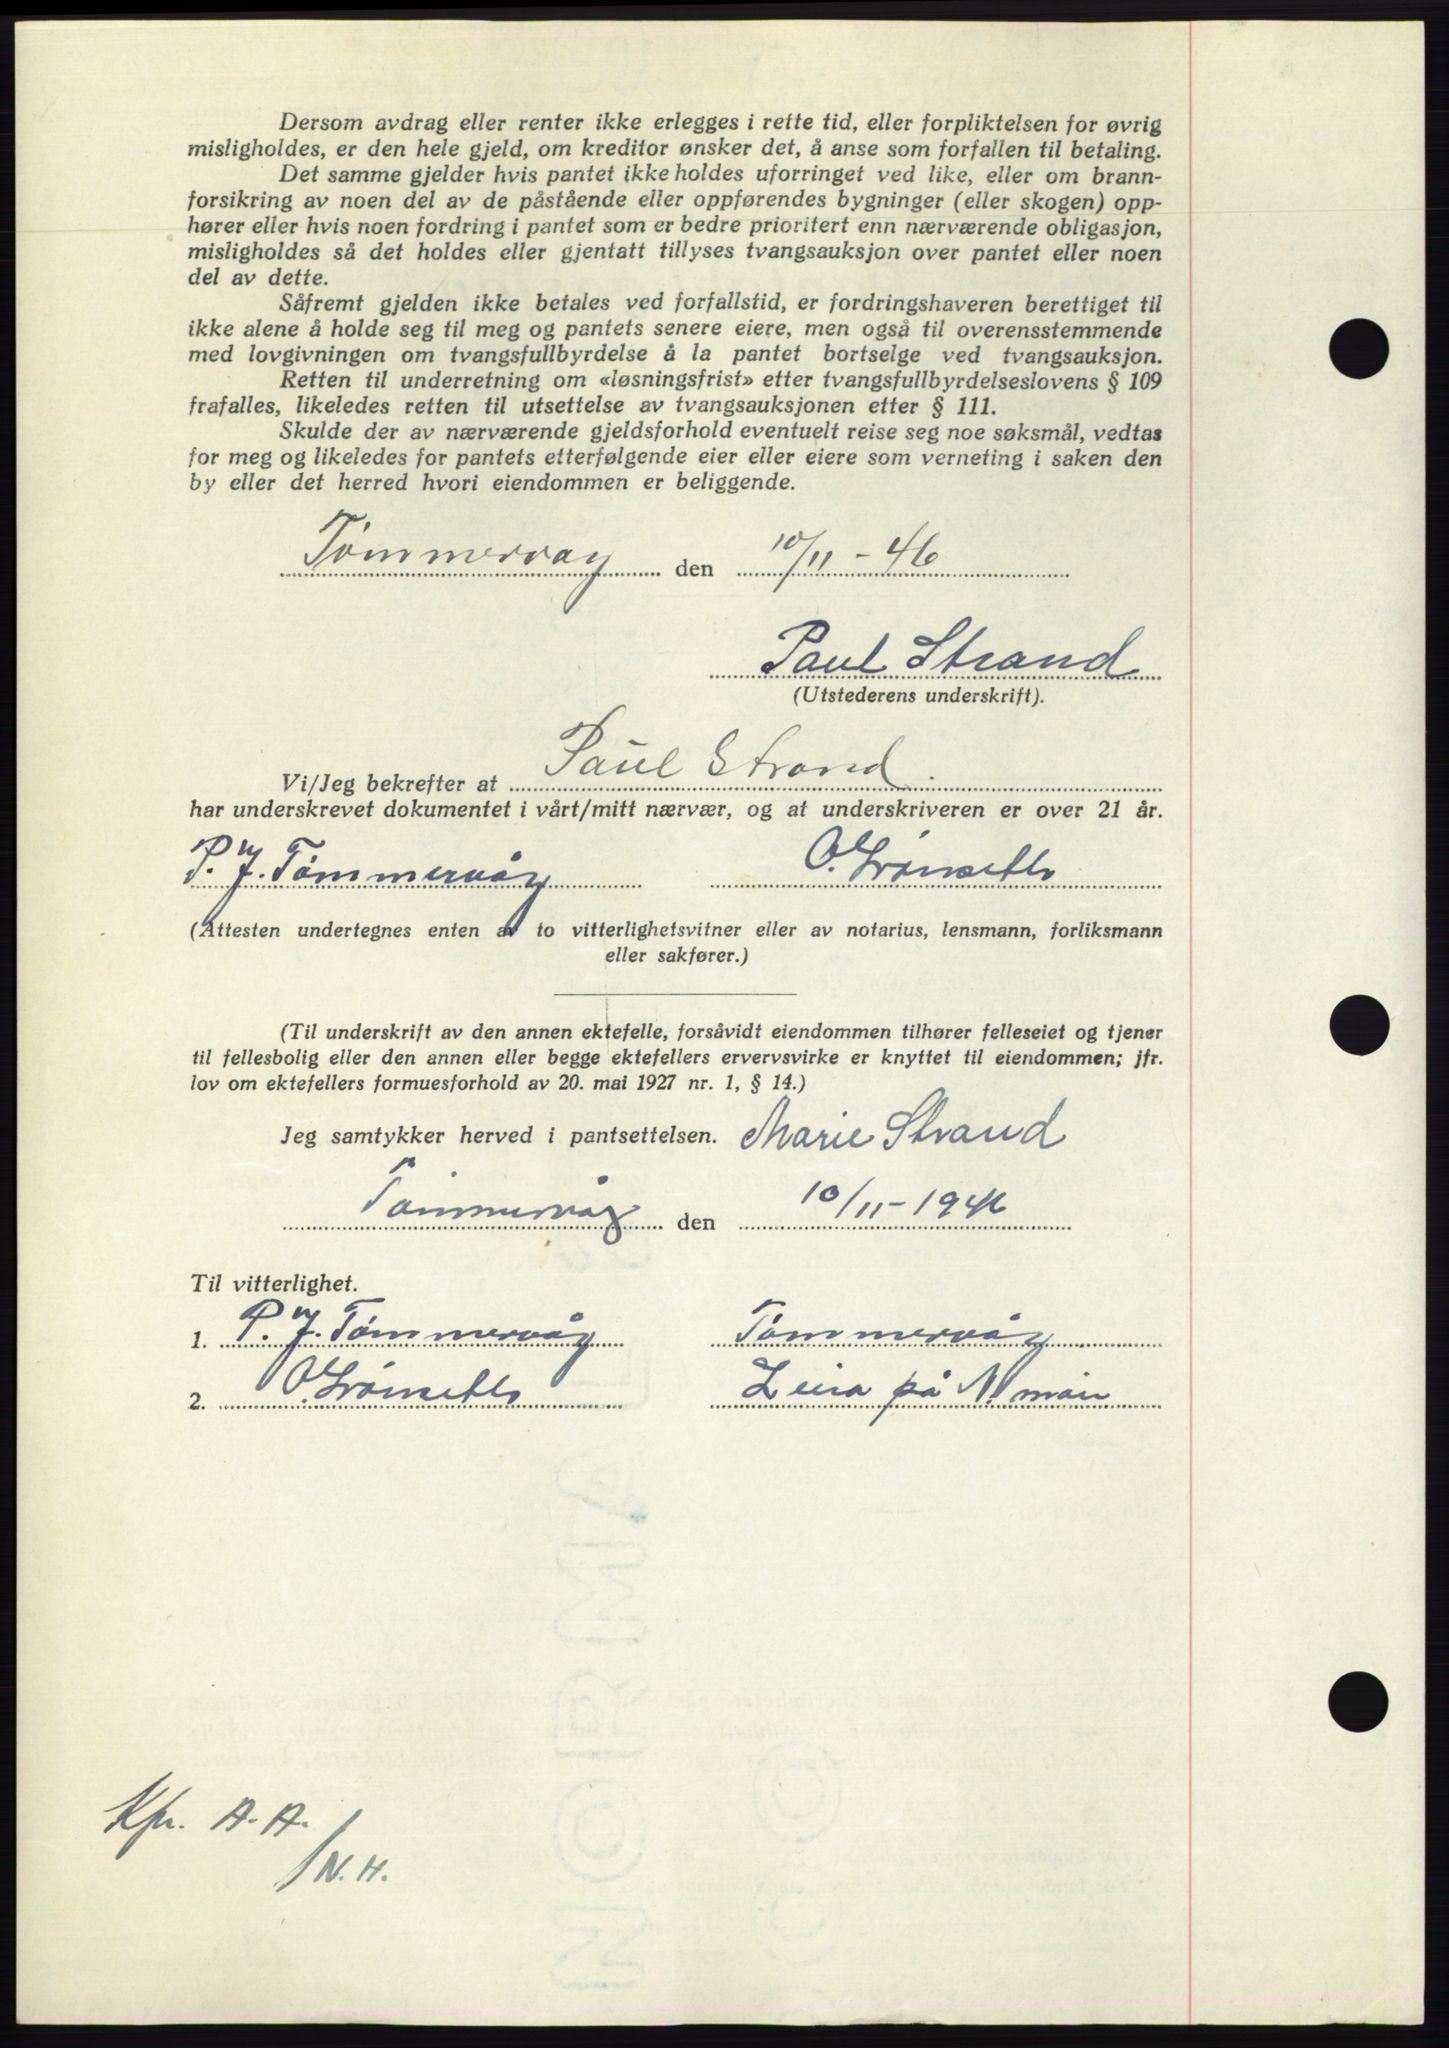 Dersom avdrag eller renter ikke erlegges i rette tid, eller forpliktelsen for øvrig
misligholdes, er den hele gjeld, om kreditor ønsker det, å anse som forfallen til betaling.
Det samme gjelder hvis pantet ikke holdes uforringet ved like, eller om brann-
forsikring av noen del av de påstående eller oppførendes bygninger (eller skogen) opp-
hører eller hvis noen fordring i pantet som er bedre prioritert enn nærværende obligasjon,
misligholdes så det holdes eller gjentatt tillyses tvangsauksjon over pantet eller noen
del av dette.
Såfremt gjelden ikke betales ved forfallstid, er fordringshaveren berettiget til
ikke alene å holde seg til meg og pantets senere eiere, men også til overensstemmende
med lovgivningen om tvangsfullbyrdelse å la pantet bortselge ved tvangsauksjon.
Retten til underretning om «løsningsfrist» etter tvangsfullbyrdelseslovens § 109
frafalles, likeledes retten til utsettelse av tvangsauksjonen etter § 111.
Skulde der av nærværende gjeldsforhold eventuelt reise seg noe søksmål, vedtas
for meg og likeledes for pantets etterfølgende eier eller eiere som verneting i saken den
by eller det herred hvori eiendommen er beliggende.
Tømmervag den 10/11 - 46
Paul Strand
(Utstederens underskrift).
Vi/Jeg bekrefter at Paul Strand.
har underskrevet dokumentet i vårt/mitt nærvær, og at underskriveren er over 21 år.
P. J. Tømmervåg O. Grønseth
(Attesten undertegnes enten av to vitterlighetsvitner eller av notarius, lensmann, forliksmann
eller sakfører.)
(Til underskrift av den annen ektefelle, forsåvidt eiendommen tilhører felleseiet og tjener
til fellesbolig eller den annen eller begge ektefellers ervervsvirke er knyttet til eiendommen; jfr.
lov om ektefellers formuesforhold av 20. mai 1927 nr. 1, § 14.)
Jeg samtykker herved i pantsettelsen. Marie Strand
Tømmervåg den 10/11 - 1946
Til vitterlighet.
1. P. J. Tømmervåg Tømmervåg
2. O. Grønseth Leira på N.møir
Kfr. A. A.
/N. H.